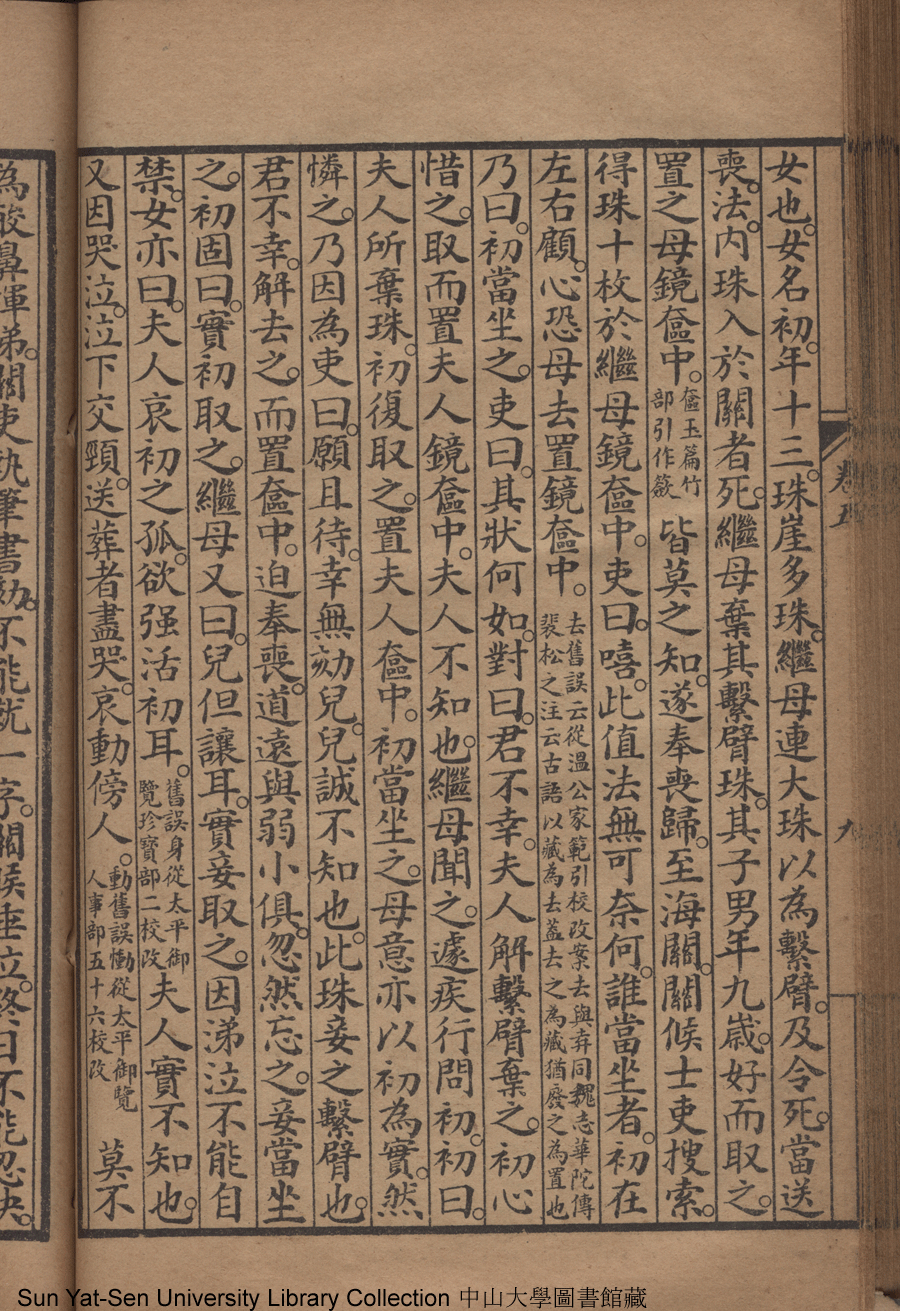 卷五
九
女也。女名初。年十三。珠崖多珠。繼母連大珠以為繫臂。及令死。當送
喪。法。內珠入於關者死。繼母棄其繫臂珠。其子男年九歲。好而取之。
置之母鏡奩中。奩玉篇竹部引作籢皆莫之知。遂奉喪歸。至海關。關候士吏搜索。
得珠十枚於繼母鏡奩中。吏曰。嘻。此值法無可奈何。誰當坐者。初在
左右顧。心恐母去置鏡奩中。去舊誤云從溫公家範引校改案去與弆同魏志華陀傳裴松之注云古語以藏為去蓋去之為藏猶廢之為置也
乃曰。初當坐之。吏曰。其狀何如。對曰。君不幸。夫人解繫臂棄之。初心
惜之。取而置夫人鏡奩中。夫人不知也。繼母聞之。遽疾行問初。初曰。
夫人所棄珠。初復取之。置夫人奩中。初當坐之。母意亦以初為實。然
憐之。乃因為吏曰。願且待。幸無劾兒。兒誠不知也。此珠妾之繫臂也。
君不幸。解去之。而置奩中。迫奉喪。道遠與弱小俱。忽然忘之。妾當坐
之。初固曰。實初取之。繼母又曰。兒但讓耳。實妾取之。因涕泣不能自
禁。女亦曰。夫人哀初之孤。欲强活初耳。舊誤身從太平御覽珍寶部二校改夫人實不知也。
又因哭泣。泣下交頸。送葬者盡哭。哀動傍人。動舊誤慟從太平御覽人事部五十六校改莫不
為酸鼻揮涕。關吏執筆書劾。不能就一字。關候垂泣。終日不能忍決。
Sun Yat-Sen University Library Collection 中山大學圖書館藏